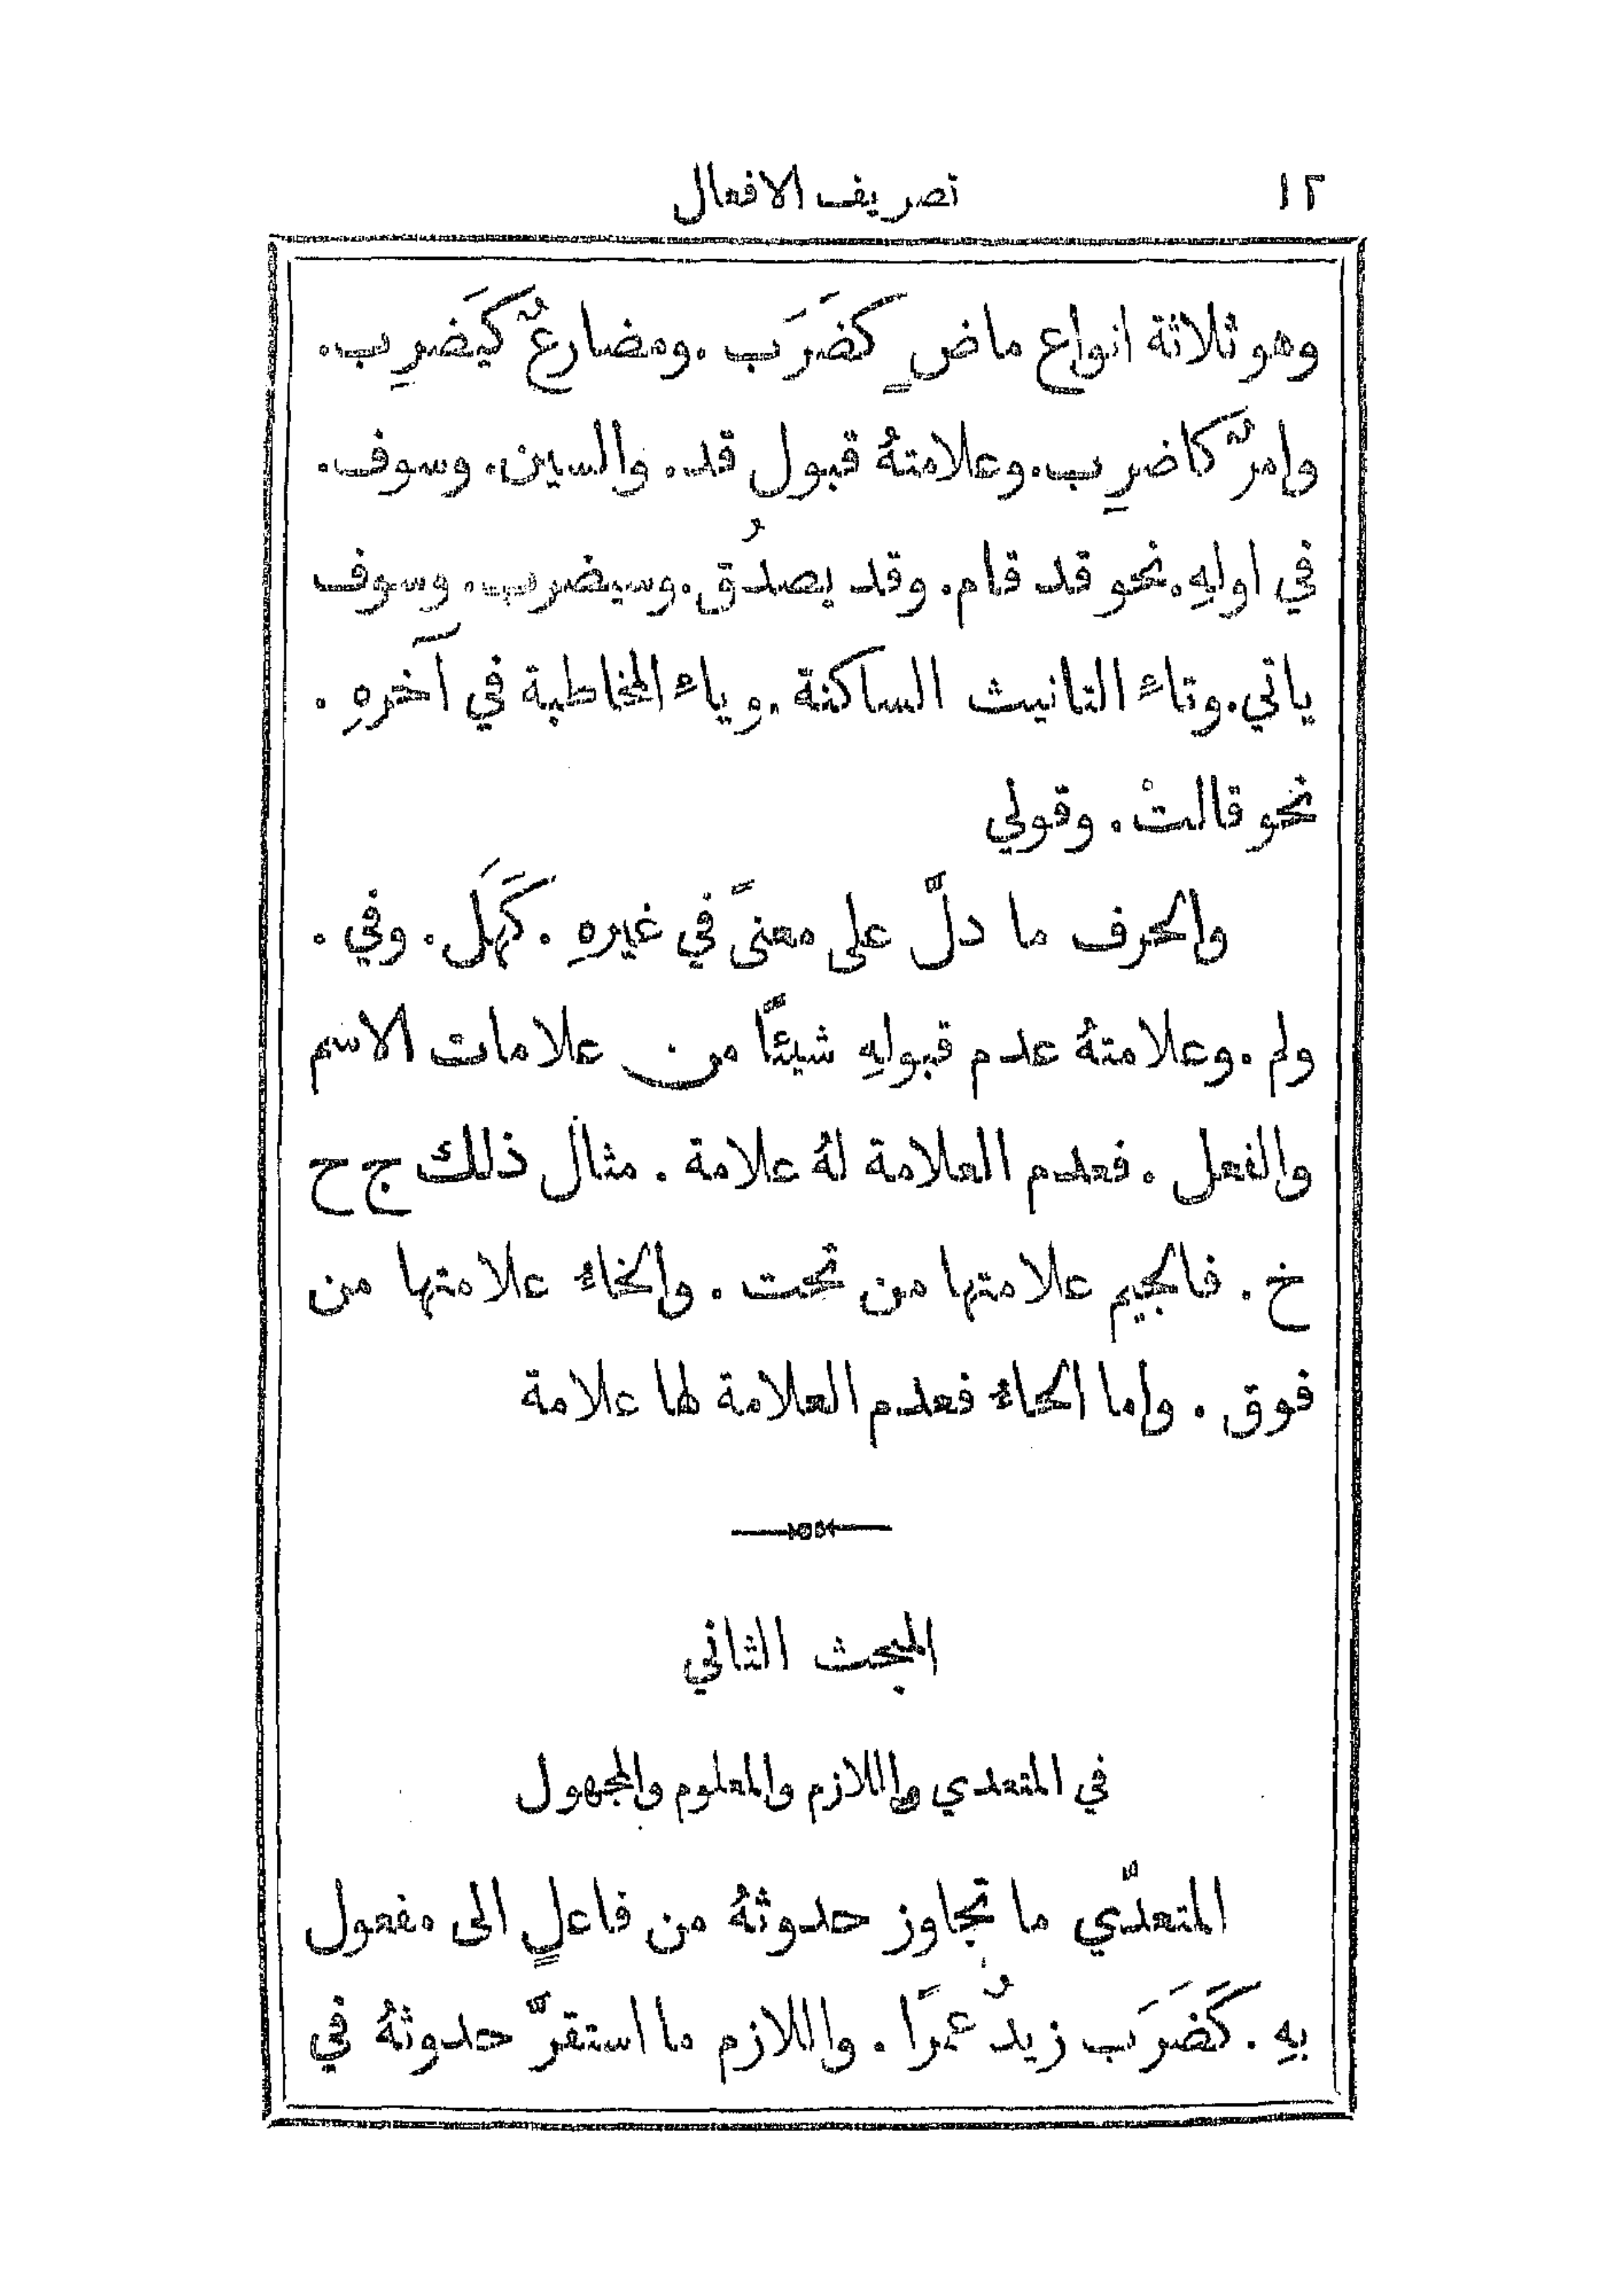 ١٢ تصريف الافعال
وهو ثلاثة انواع ماضٍ كضَرَب. ومضارعٌ كيَضرِب.
وامرٌ كاضرِب. وعلامتهُ قبول قد. والسين. وسوف.
في اولهِ. نحو قد قام. وقد يصدُق. وسيضرب. وسوف
ياتي. وتاء التانيث الساكنة. وياء المخاطبة في آخرهِ.
نحو قالتْ. وقولي
والحرف ما دلَّ على معنىً في غيرهِ. كَهَل. وفي.
ولم. وعلامتهُ عدم قبولهِ شيئًا من علامات الاسم
والفعل. فعدم العلامة لهُ علامة. مثال ذلك ج ح
خ. فالجيم علامتها من تحت. والخاء علامتها من
فوق. واما الحاء فعدم العلامة لها علامة
المبحث الثاني
في المتعدي واللازم والمعلوم والمجهول
المتعدّي ما تجاوز حدوثهُ من فاعلٍ الى مفعول
بهِ. كَضَرَب زيدٌ عمرًا. واللازم ما استقرَّ حدوثهُ في